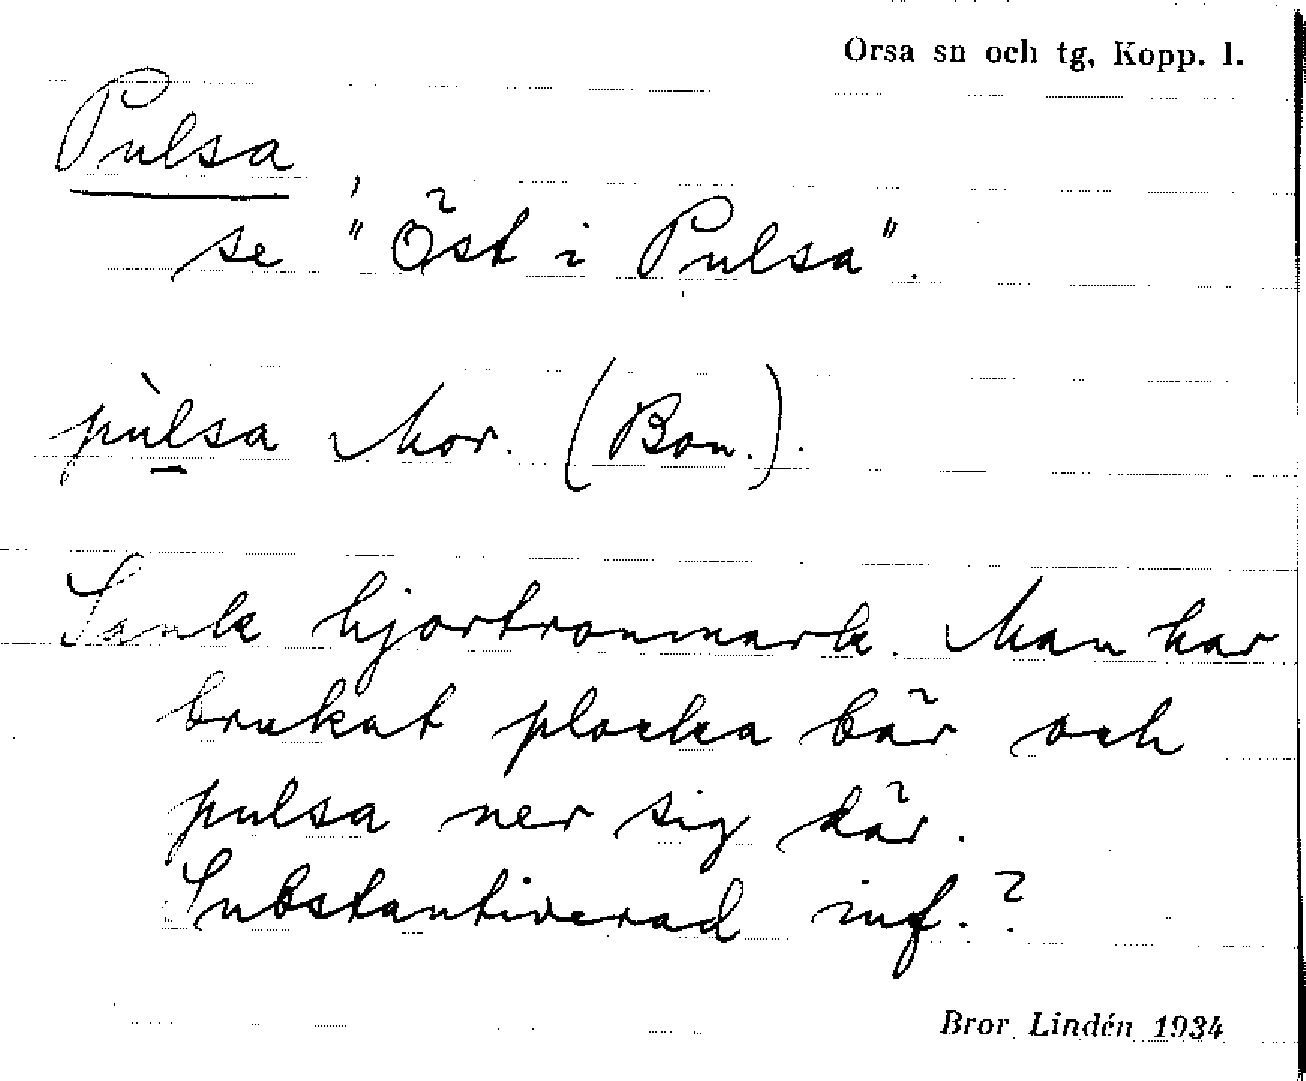 Orsa sn och tg, Kopp. l.
Pulsa,
se "Öst i Pulsa".
pùlsa Mor. (Bon.).
Sank hjortronmark. Man har
brukat plocka bär och
pulsa ner sig där.
Substantiverad inf.?
Bror Lindén 1934